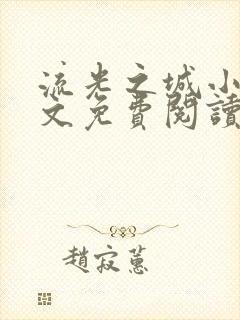 流光之城小
文免費閱讀
趙寂蕙